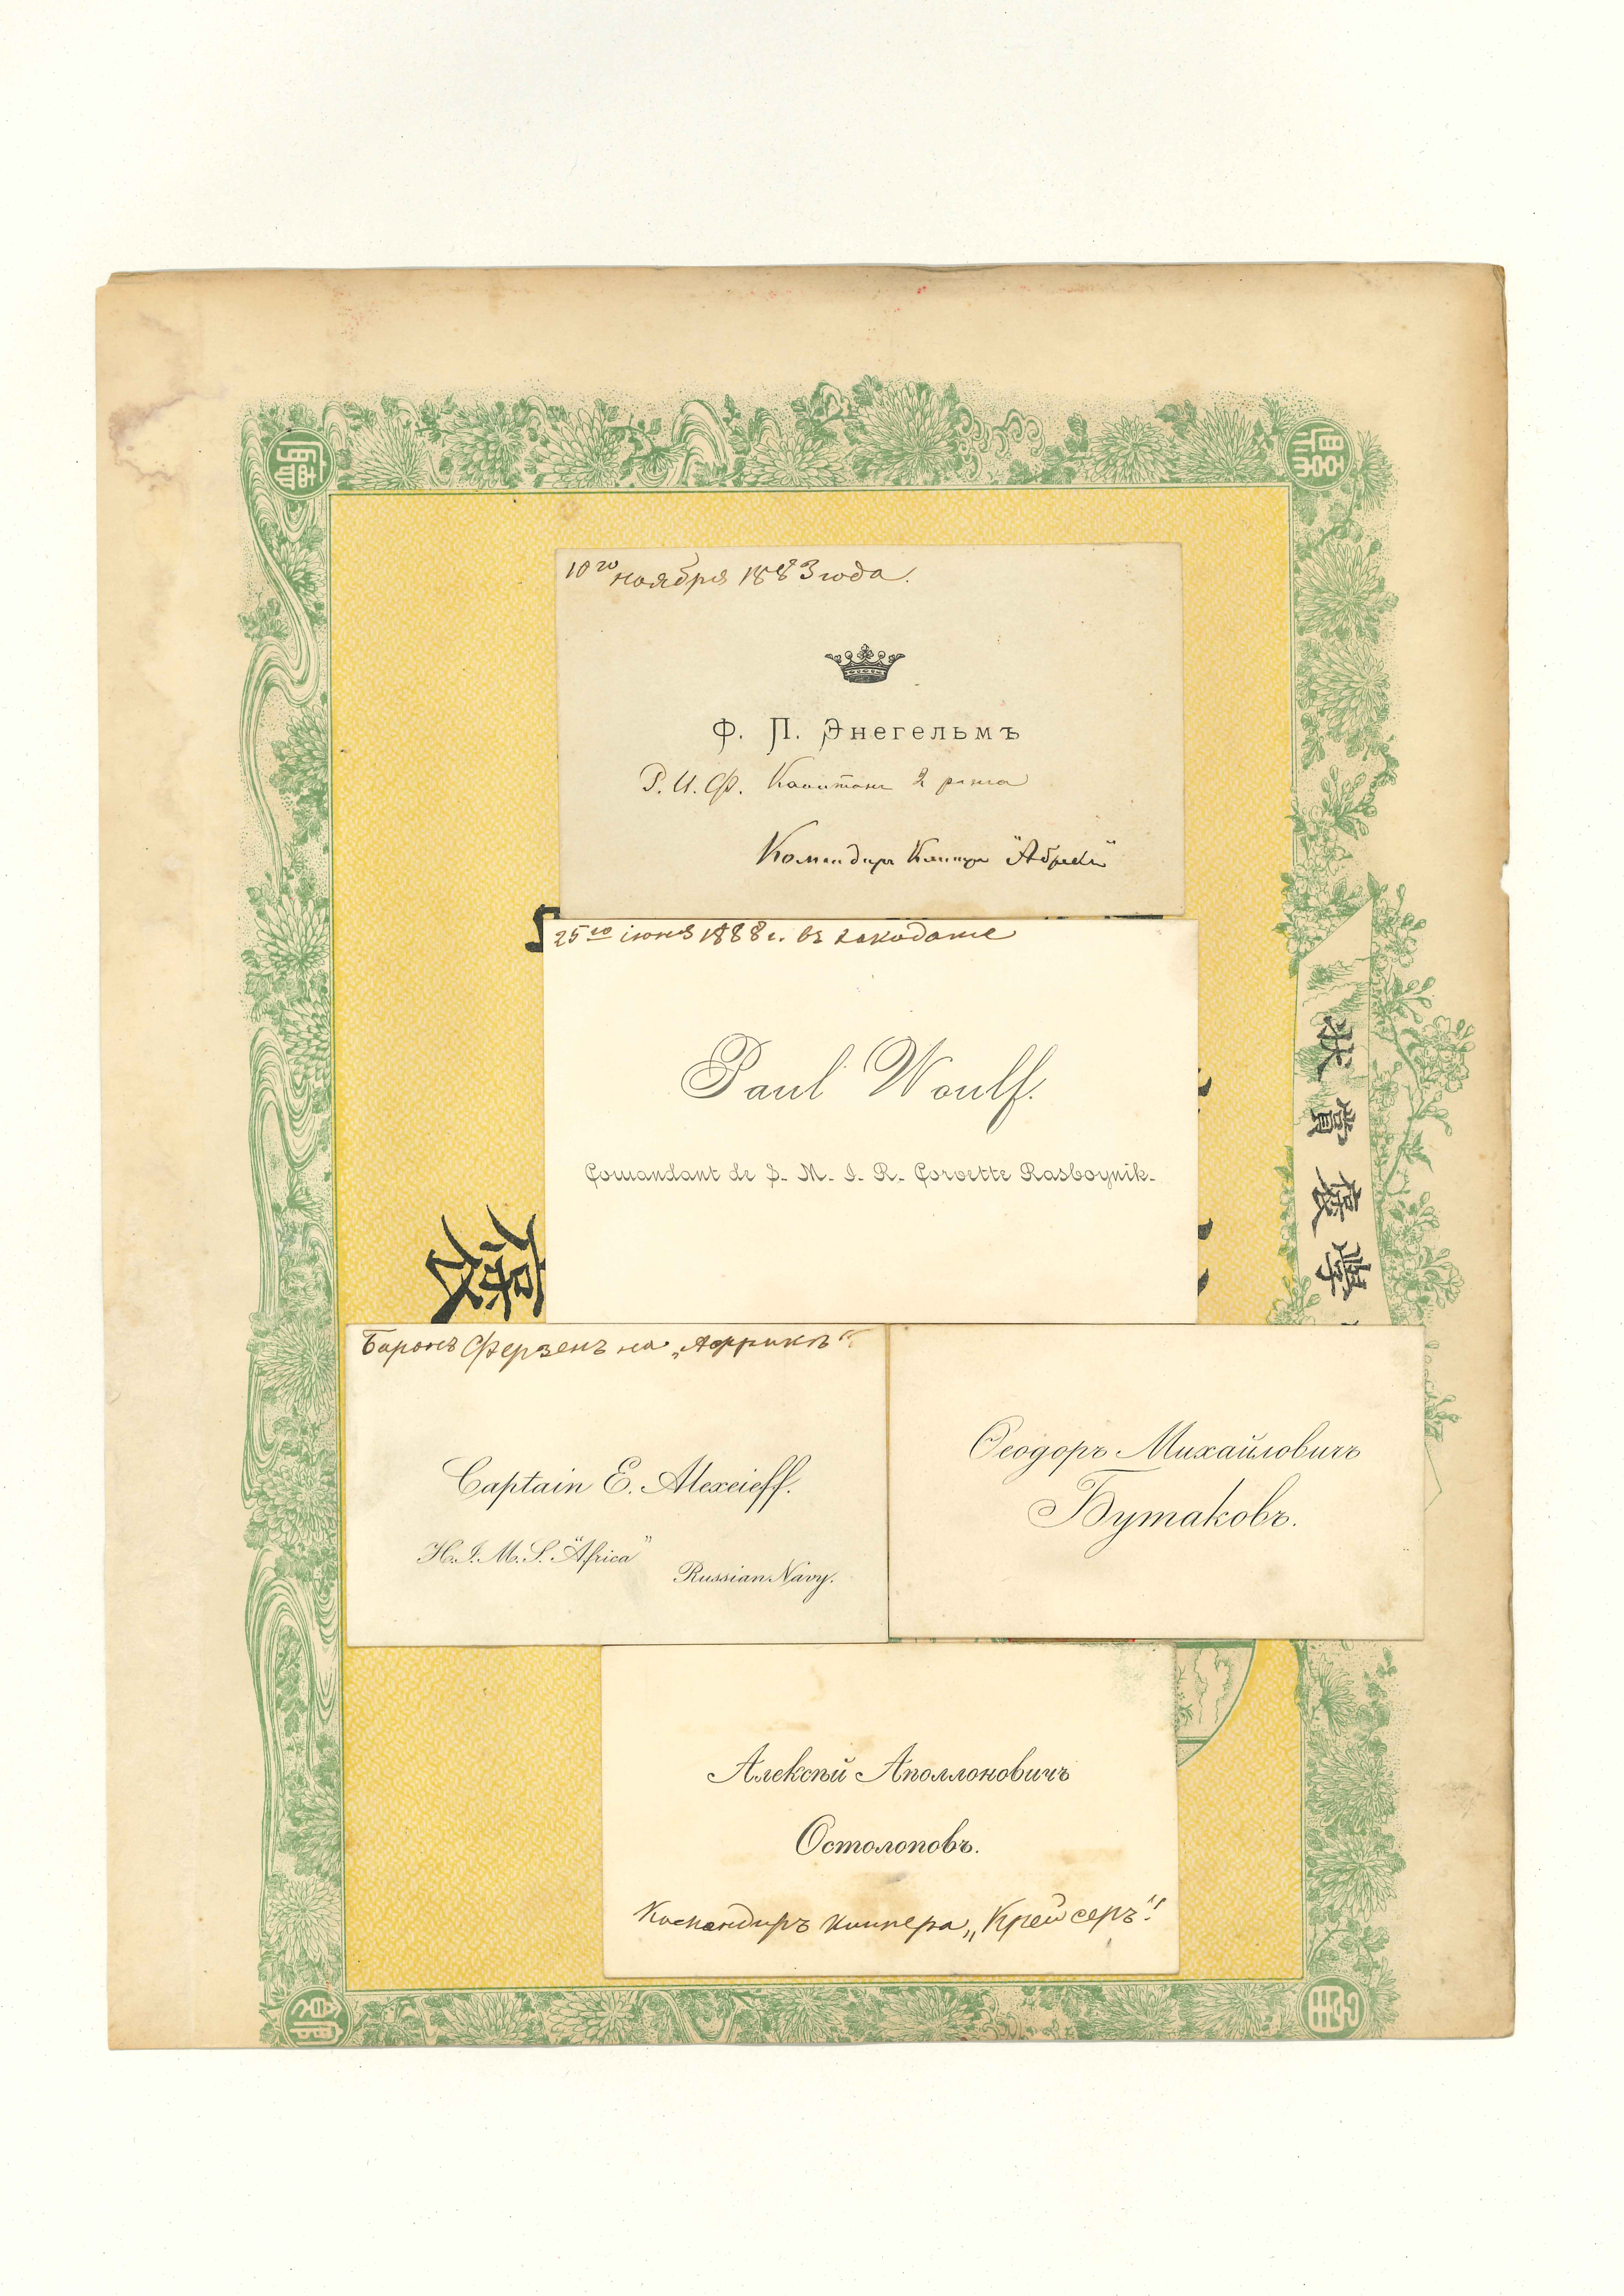 10го ноября 1883 года.
Ф. П. Энегельмъ
Р. И. Ф. Капитанъ 2 ранга
Командиръ Клипера "Абрекъ"
25го іюня 1888 г. въ Хакодате
Paul Woulf.
Comandant de S. M. I. R. Corvette Rasboynik.
Баронъ Ферзенъ на „Африкѣ“.
Captain E. Alexeieff.
H.I.M.S. "Africa"
Russian Navy.
Ѳеодоръ Михайловичъ
Бутаковъ.
Алексѣй Аполлоновичъ
Остолоповъ.
Командиръ клипера „Крейсеръ“.
狀
賞
褒
學
褒